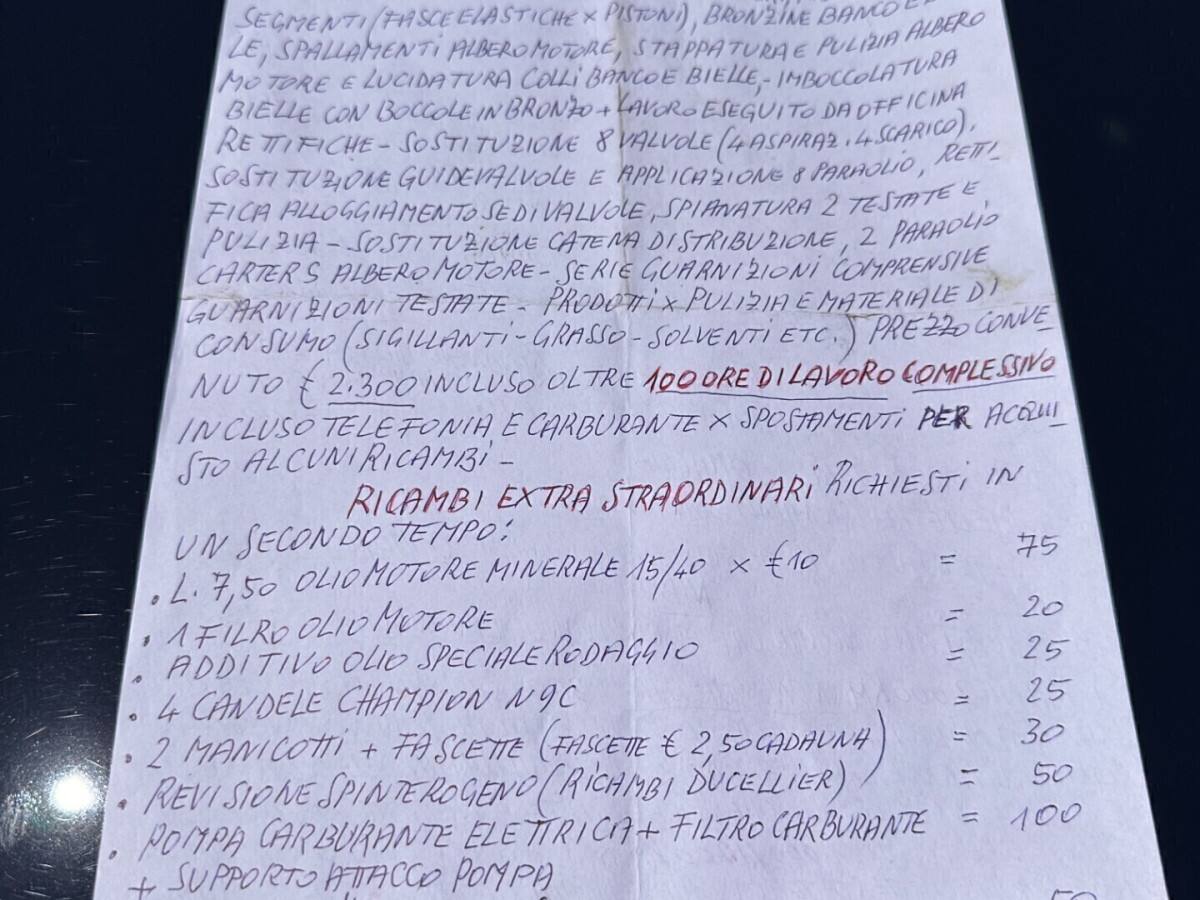 SEGMENTI (FASCE ELASTICHE X PISTONI), BRONZINE BANCO E
LE, SPALLAMENTI ALBERO MOTORE, STAPPATURA E PULIZIA ALBERO
MOTORE E LUCIDATURA COLLI BANCO E BIELLE,- IMBOCCOLATURA
BIELLE CON BOCCOLE IN BRONZO + LAVORO ESEGUITO DA OFFICINA
RETTIFICHE - SOSTITUZIONE 8 VALVOLE (4 ASPIRAZ. 4 SCARICO),
SOSTITUZIONE GUIDEVALVOLE E APPLICAZIONE 8 PARAOLIO, RETTI-
FICA ALLOGGIAMENTO SEDI VALVOLE, SPIANATURA 2 TESTATE E
PULIZIA - SOSTITUZIONE CATENA DISTRIBUZIONE, 2 PARAOLIO
CARTERS ALBERO MOTORE - SERIE GUARNIZIONI COMPRENSIVE
GUARNIZIONI TESTATE - PRODOTTI X PULIZIA E MATERIALE DI
CONSUMO (SIGILLANTI - GRASSO - SOLVENTI ETC.) PREZZO CONVE-
NUTO € 2.300 INCLUSO OLTRE 100 ORE DI LAVORO COMPLESSIVO
INCLUSO TELEFONIA E CARBURANTE X SPOSTAMENTI PER ACQUI-
STO ALCUNI RICAMBI -
RICAMBI EXTRA STRAORDINARI RICHIESTI IN
UN SECONDO TEMPO:
. L. 7,50 OLIO MOTORE MINERALE 15/40 X €10 = 75
. 1 FILRO OLIO MOTORE = 20
. ADDITIVO OLIO SPECIALE RODAGGIO = 25
. 4 CANDELE CHAMPION N9C = 25
. 2 MANICOTTI + FASCETTE (FASCETTE € 2,50 CADAUNA) = 30
. REVISIONE SPINTEROGENO (RICAMBI DUCELLIER) = 50
. POMPA CARBURANTE ELETTRICA + FILTRO CARBURANTE = 100
+ SUPPORTO ATTACCO POMPA